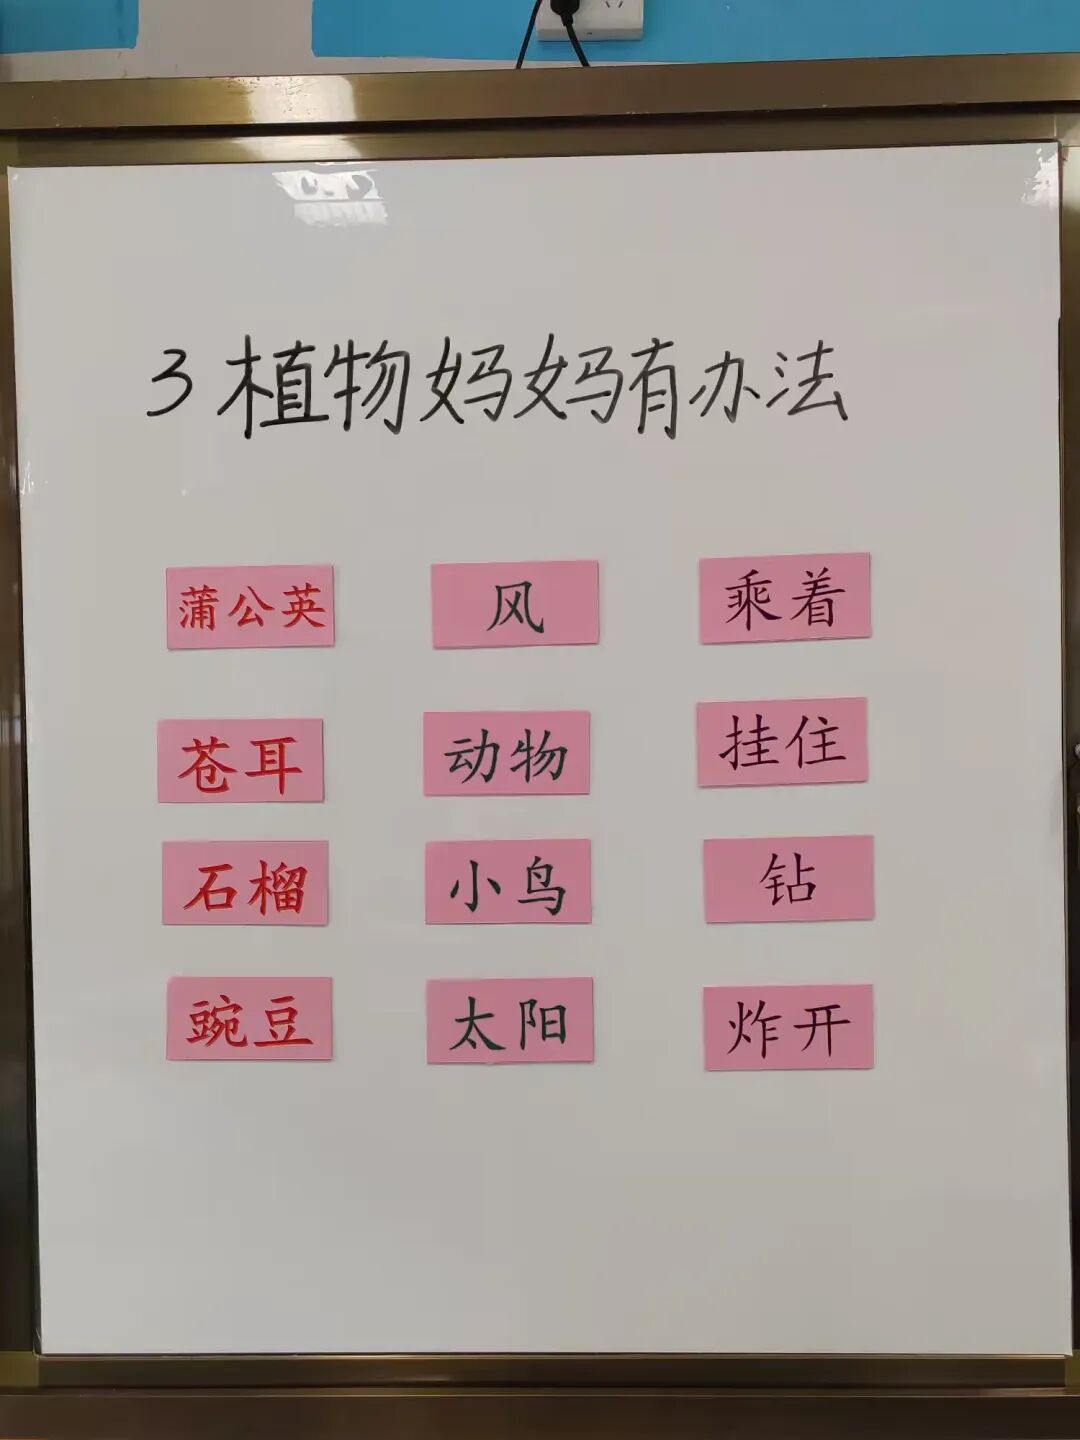 3 植物妈妈有办法
蒲公英 风 乘着
苍耳 动物 挂住
石榴 小鸟 钻
豌豆 太阳 炸开